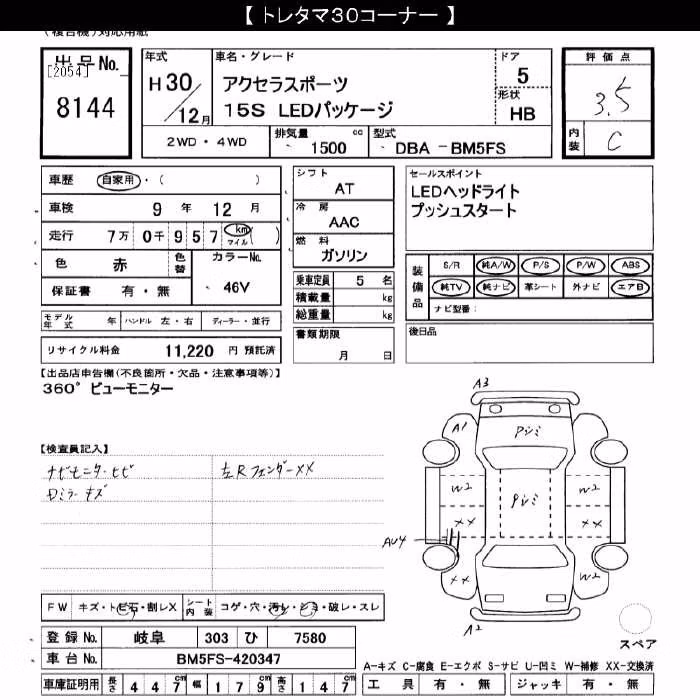 【トレタマ30コーナー】
(複合機)対応用紙
出品No.
[2054]
8144
年式
H30/12月
車名・グレード
アクセラスポーツ
15S LEDパッケージ
ドア
5
形状
HB
評価点
3.5
内装
C
2WD・4WD
排気量 1500 cc
型式 DBA - BM5FS
車歴 自家用・( )
車検 9年 12月
走行 7万 0千 9 5 7 km マイル ( )
色 赤 色替 カラーNo.
46V
保証書 有・無
モデル年式 年 ハンドル 左・右 ディーラー・並行
リサイクル料金 11,220 円 預託済
シフト
AT
冷房
AAC
燃料
ガソリン
乗車定員 5 名
積載量 kg
総重量 kg
書類期限
月 日
セールスポイント
LEDヘッドライト
プッシュスタート
装備品
S/R 純A/W P/S P/W ABS
純TV 純ナビ 革シート 外ナビ エアB
ナビ型番:
後日品
【出品店申告欄(不良箇所・欠品・注意事項等)】
360°ビューモニター
【検査員記入】
ナビモニターヒビ
Dミラーキズ
左RフェンダーXX
A3
A1
Pシミ
W2
W2
Pシミ
XX
XX
AU4
XX
W2
A2
スペア
FW キズ・トビ石・割レX
シート内装 コゲ・穴・汚レ・シミ・破レ・スレ
登録No. 岐阜 303 ひ 7580
車台No. BM5FS-420347
車庫証明用 長さ 447cm 幅 179cm 高さ 147cm
A-キズ C-腐食 E-エクボ S-サビ U-凹ミ W-補修 XX-交換済
工具 有・無 ジャッキ 有・無